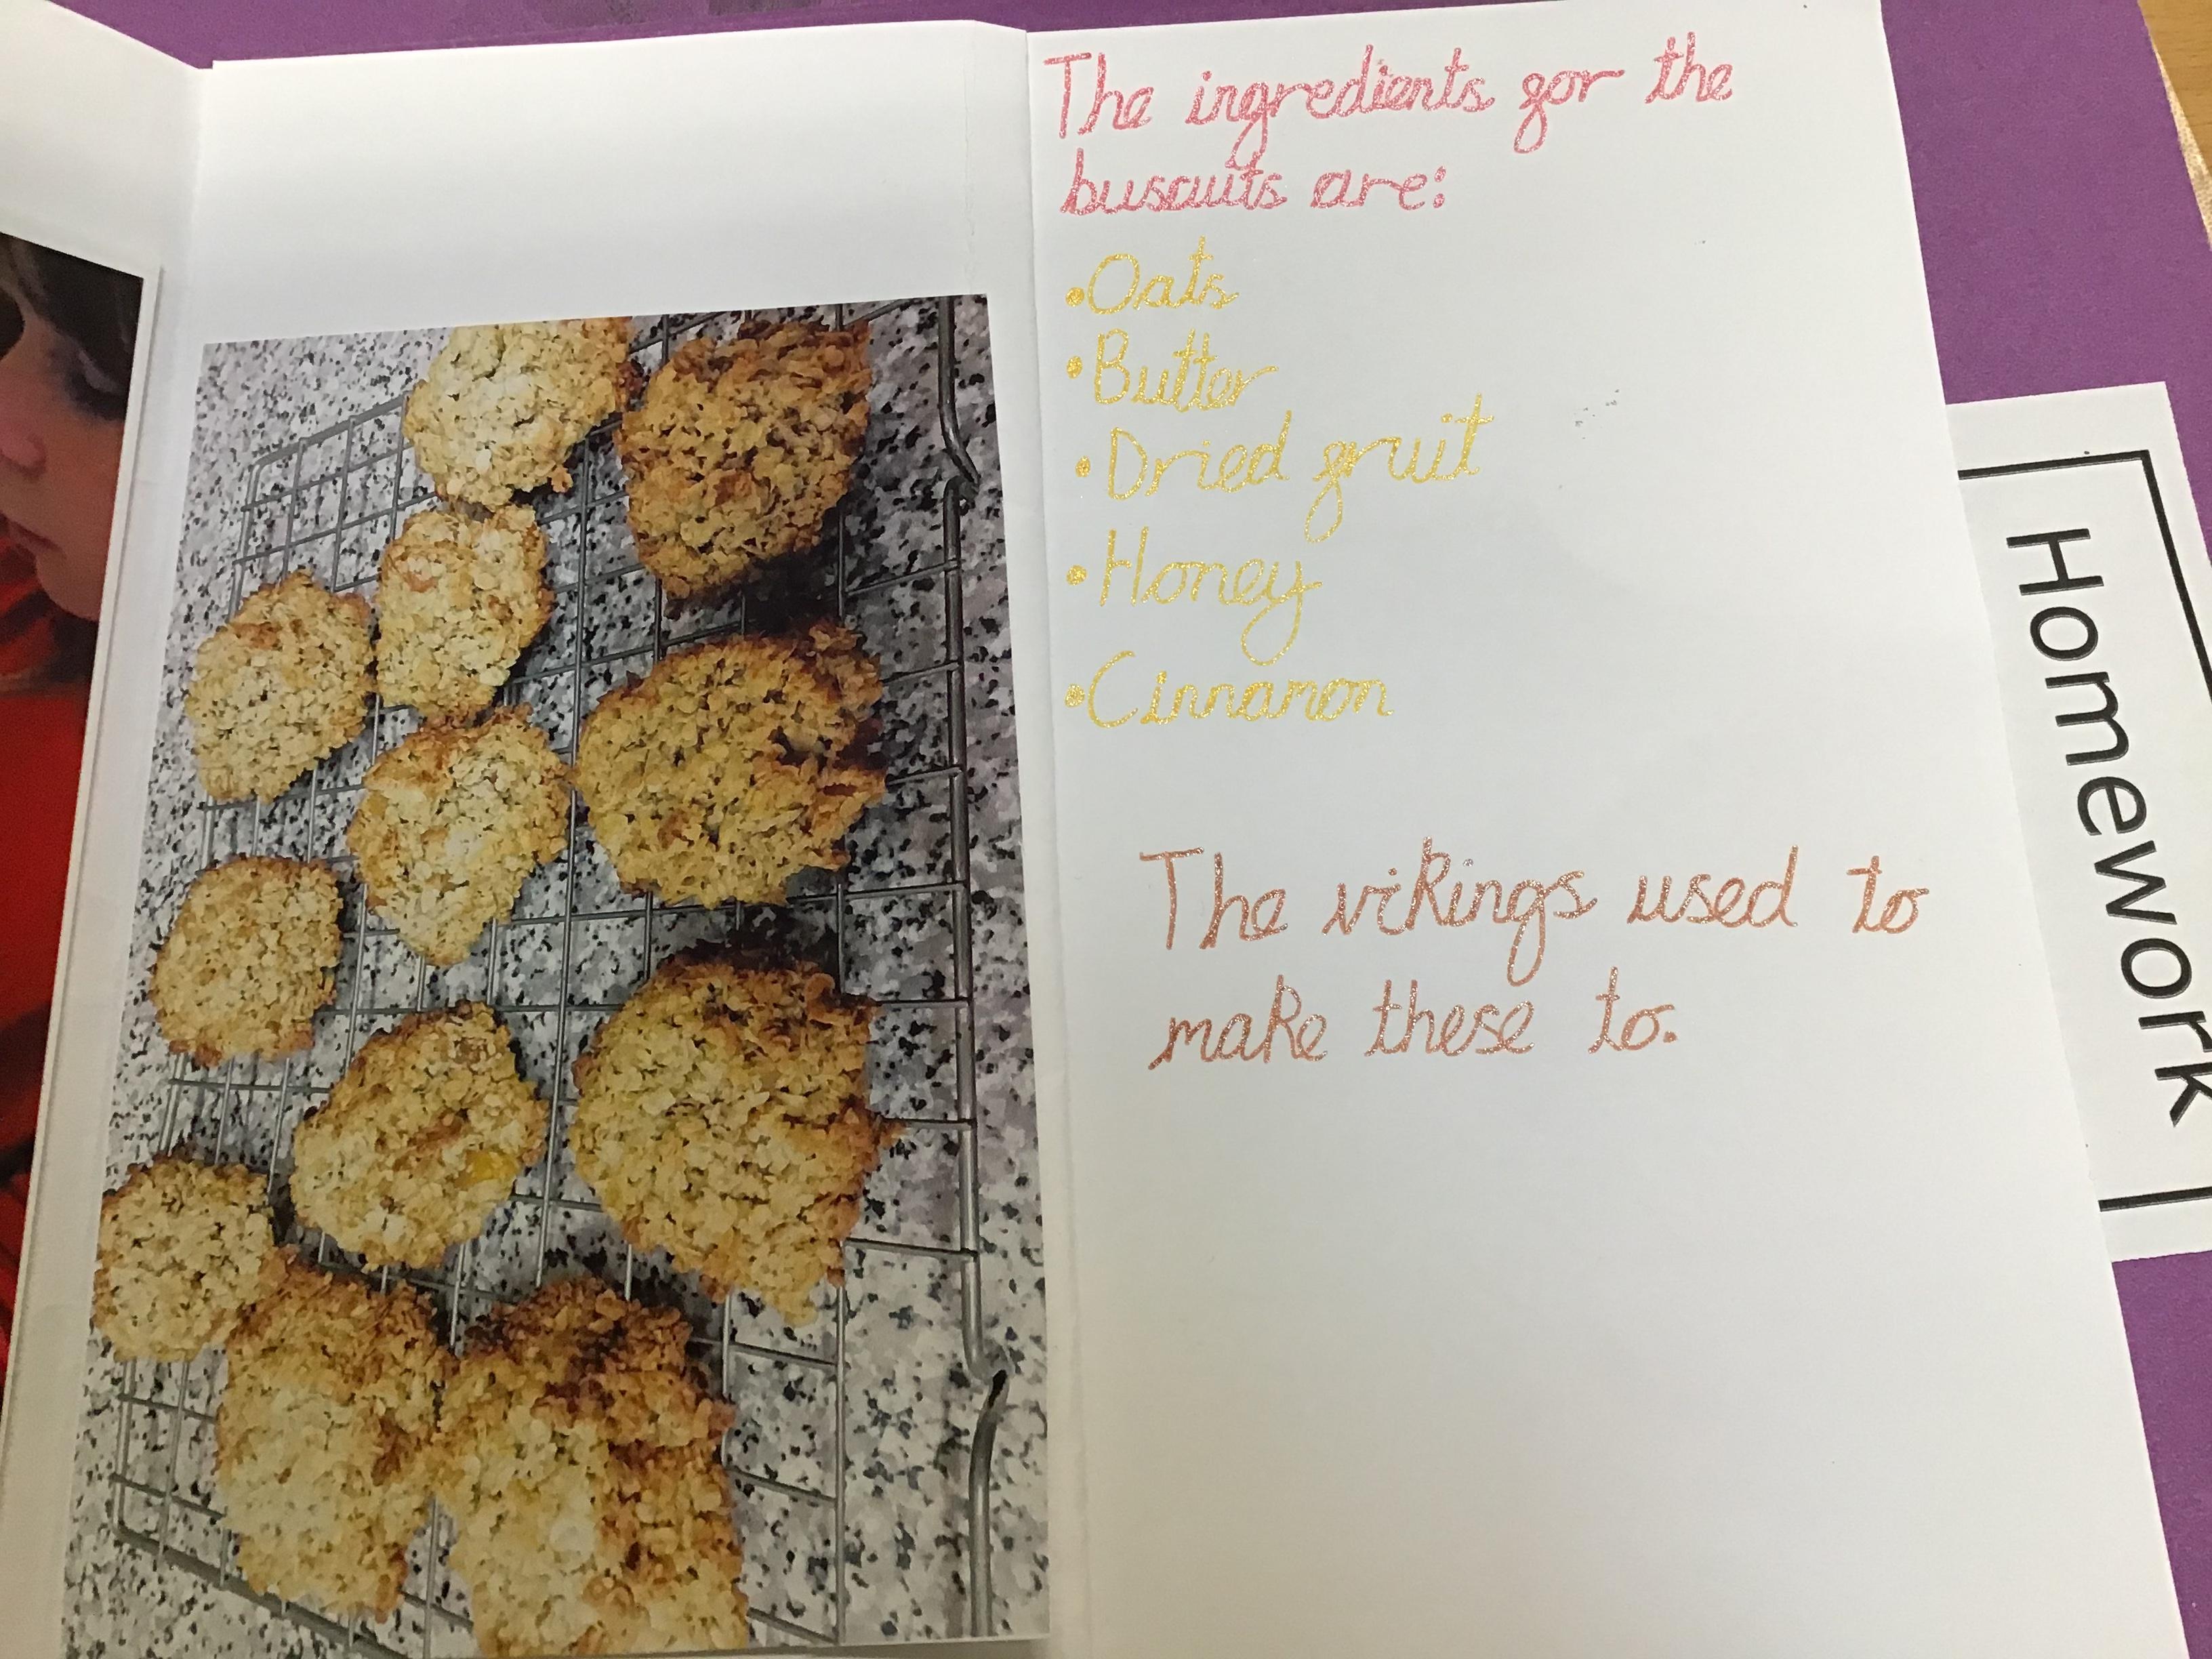 The ingredients for the
buscuits are:
•Oats
•Butter
•Dried fruit
•Honey
•Cinnamon
The vikings used to
make these to.
Homework